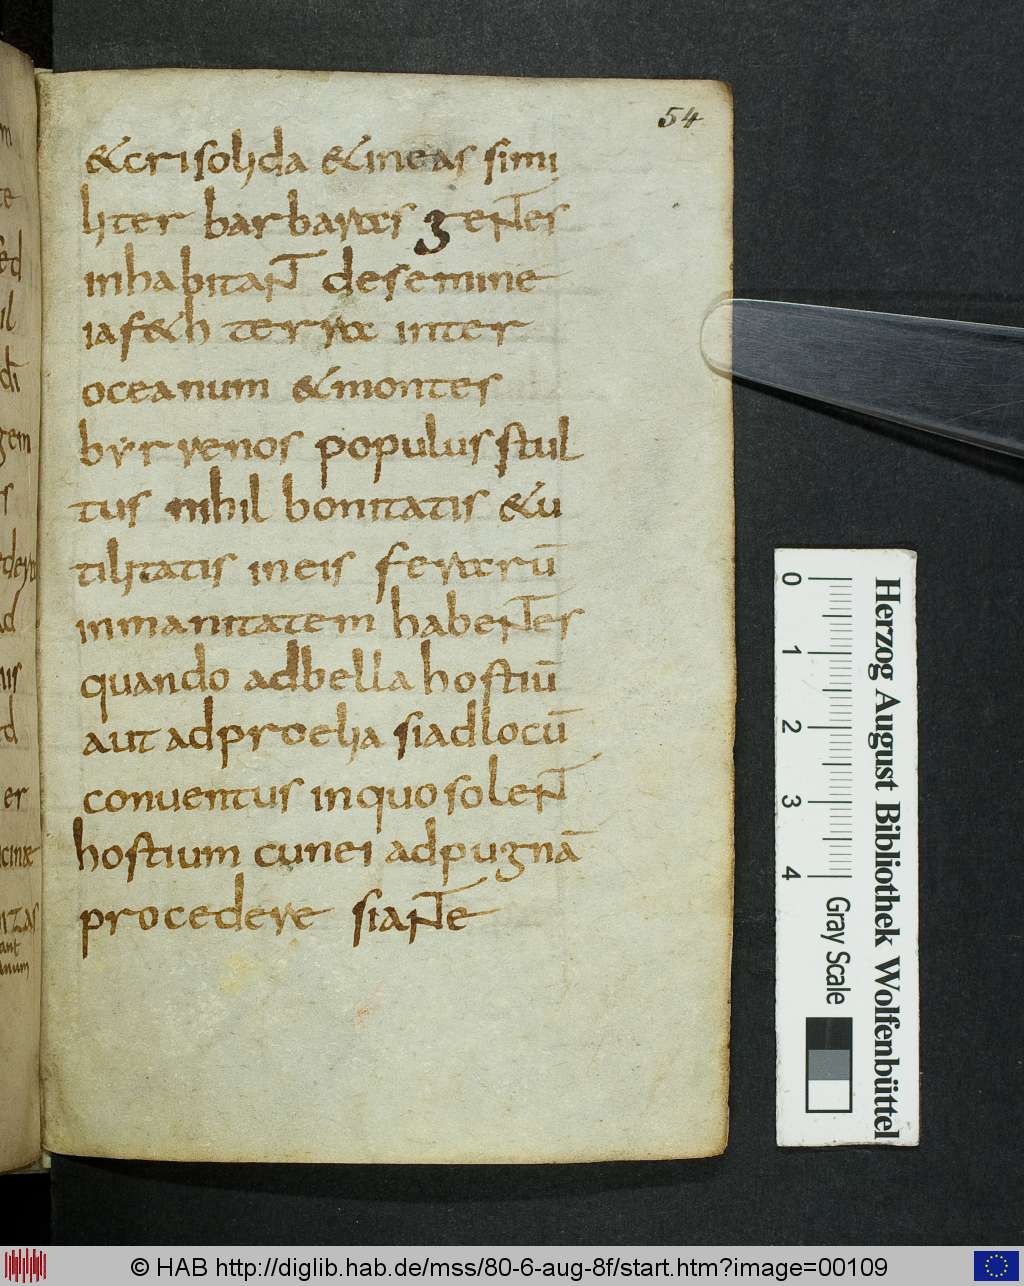 54
&crisolida &ineas simi
liter barbaras gentes
inhabitant desemine
iaf&h terra inter
oceanum &montes
byrrenos populus stul
tus nihil bonitatis &u
tilitatis ineis ferarū
inmanitatem habentes
quando adbella hostiū
aut adproelia siadlocū
conventus inquo solent
hostium cunei adpugnā
procedere siante
0 1 2 3 4
Gray Scale
Herzog August Bibliothek Wolfenbüttel
© HAB http://diglib.hab.de/mss/80-6-aug-8f/start.htm?image=00109